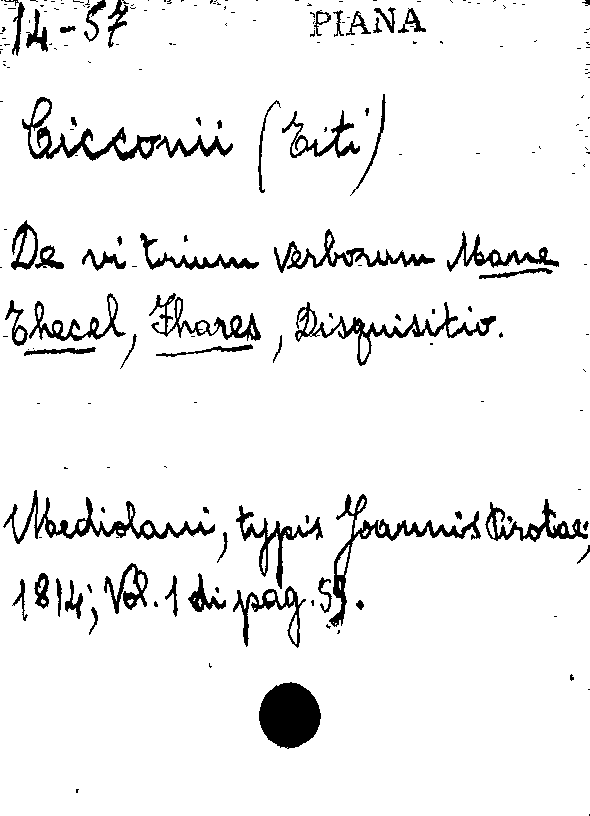 14-57 PIANA
Cicconii (Titi)
De vi trium verborum Mane
Thecel, Fhares, Disquisitio.
Mediolani, typis Joannis Pirotae,
1814; Vol. 1 di pag. 59.